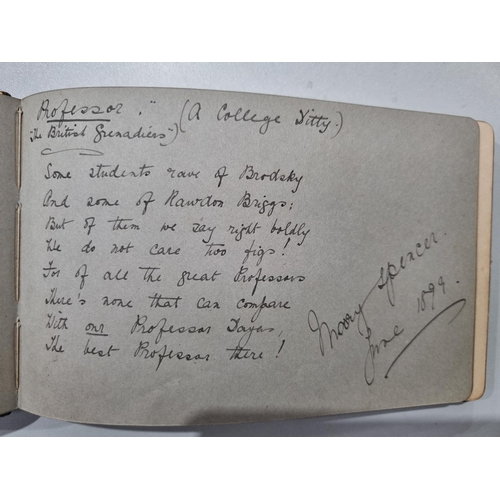 Professor." (A College Ditty.)
"The British Grenadiers")
Some students rave of Brodsky
And some of Rawdon Briggs;
But of them we say right boldly
We do not care two figs!
For of all the great Professors
There's none that can compare
With our Professor Dayas,
The best Professor there!
Mary Spencer.
June 1899.